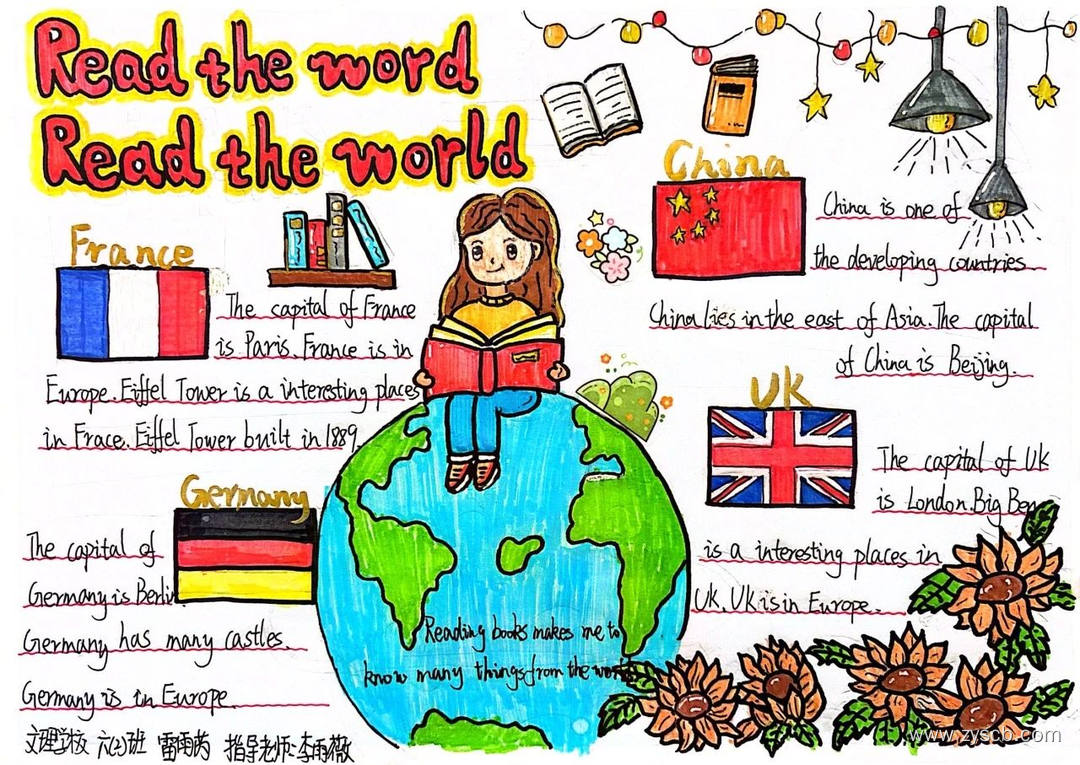 Read the word
Read the world
France
The capital of France
is Paris. France is in
Europe. Eiffel Tower is a interesting places
in Frace. Eiffel Tower built in 1889.
China
China is one of
the developing countries
China lies in the east of Asia. The capital
of China is Beijing.
UK
The capital of UK
is London. Big Ben
is a interesting places in
UK. UK is in Europe.
Germany
The capital of
Germany is Berlin
Germany has many castles.
Germany is in Europe.
Reading books makes me to
know many things from the world
文理学校 六(3)班 雷雨芮 指导老师:李雨薇
www.zyscb.com